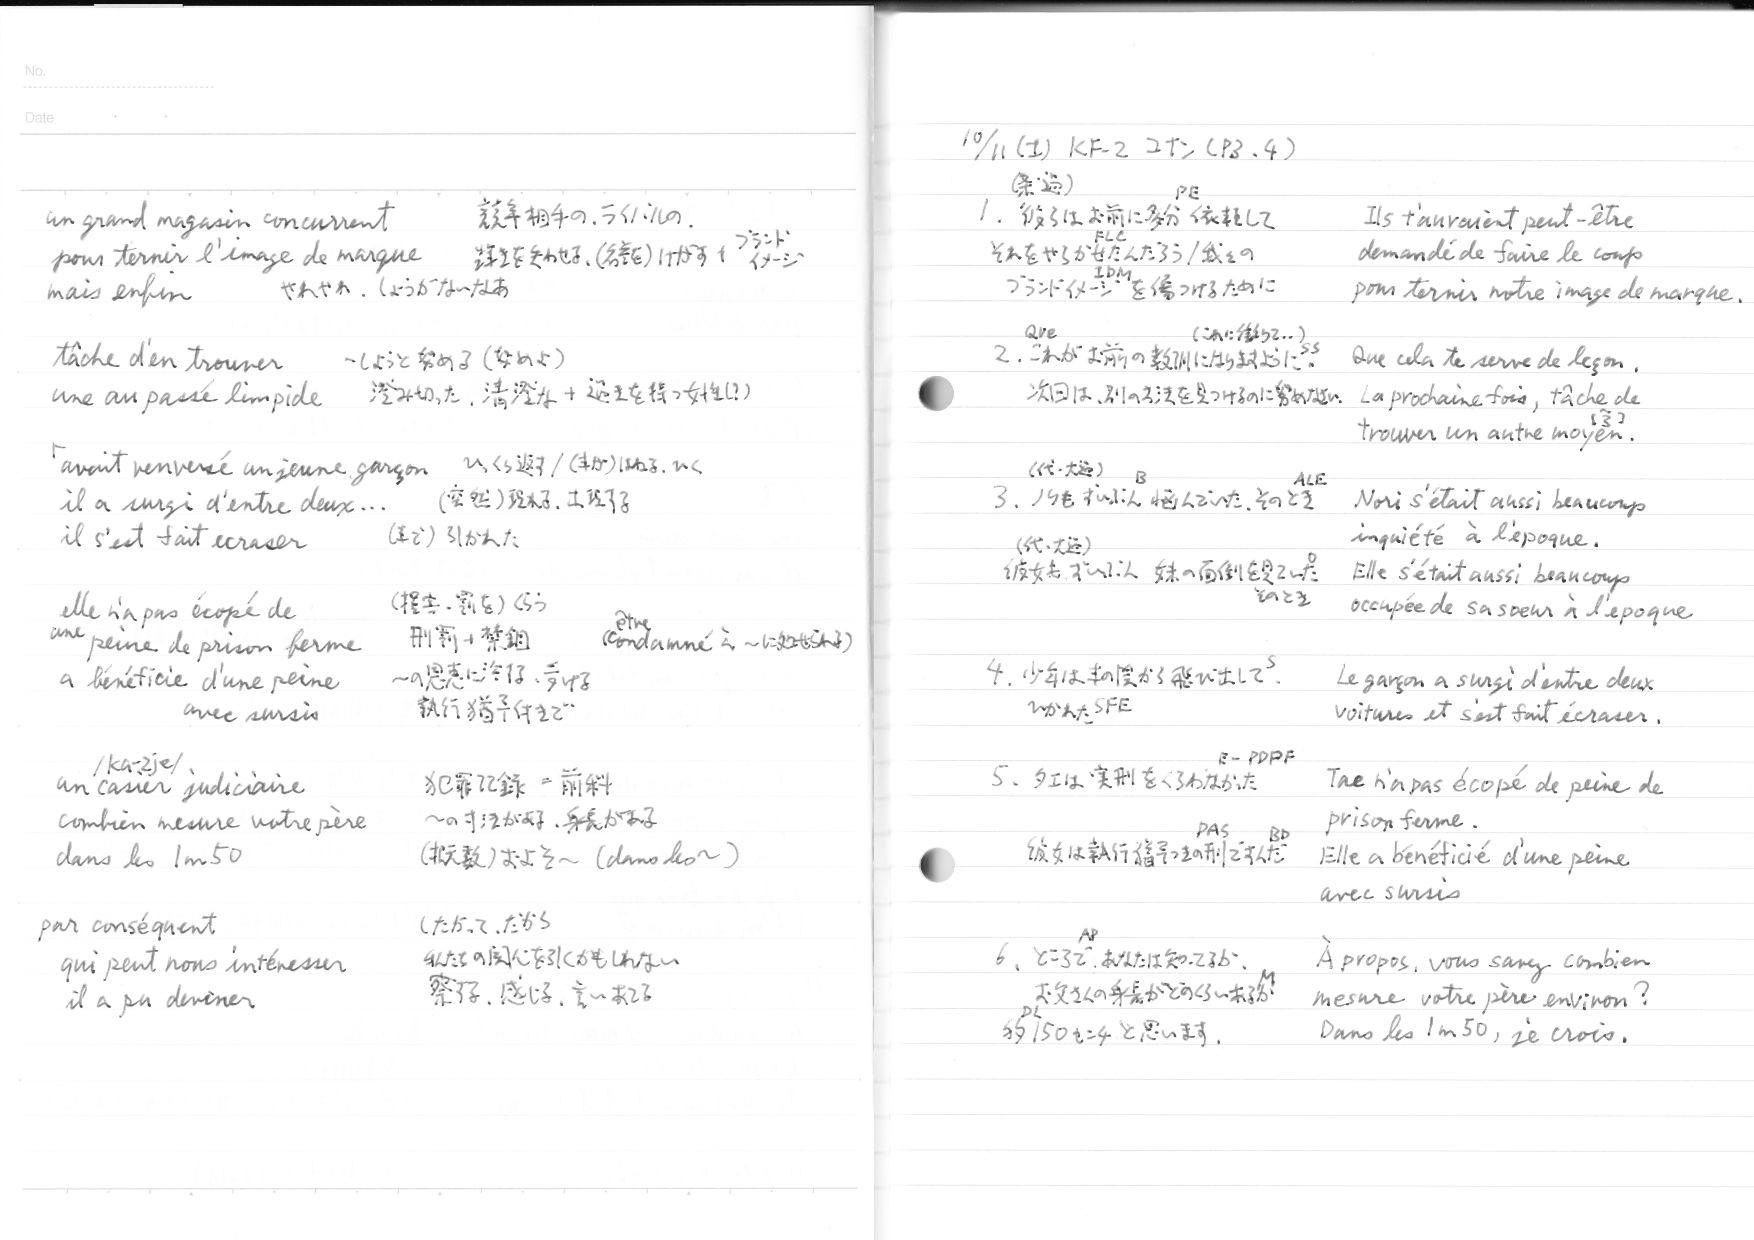 No.
Date
un grand magasin concurrent 競争相手の、ライバルの、
pour ternir l'image de marque を失わせる、(名誉を)けがす + ブランドイメージ
mais enfin やれやれ、しょうがないなあ
tâche d'en trouver ~しようと努める(努めよ)
une au passé limpide 澄み切った、清澄な + 過去を持つ女性(?)
「avait renversé un jeune garçon ひっくり返す/(車が)はねる、ひく
il a surgi d'entre deux... (突然)現れる、出現する
il s'est fait ecraser (車で)引かれた
elle n'a pas écopé de (損害・罰を)くらう
une peine de prison ferme 刑罰+禁錮 (être condamné à ~に処せられる)
a bénéficie d'une peine ~の恩恵に浴する、受ける
avec sursis 執行猶予付きで
/ka-zje/
un casier judiciaire 犯罪記録 = 前科
combien mesure votre père ~の寸法がある、身長がある
dans les 1m50 (概数)およそ~ (dans les~)
par conséquent したがって、だから
qui peut nous intéresser 私たちの関心を引くかもしれない
il a pu deviner 察する、感じる、言いあてる
10/11(土) KF-2 コナン(P3.4)
(条・過)
PE
1. 彼らはお前に多分依頼して Ils t'auraient peut-être
FLC
それをやらかせたんだろう/我々の demandé de faire le coup
IDM
ブランドイメージを傷つけるために pour ternir notre image de marque.
Que (これに懲りて…)
2. これがお前の教訓になりますように SS Que cela te serve de leçon.
次回は、別の方法を見つけるのに努めなさい. La prochaine fois, tâche de
trouver un autre moyen.
(代・大過) B ALE
3. ノリもずいぶん悩んでいた、そのとき Nori s'était aussi beaucoup
inquiété à l'époque.
(代・大過) O
彼女もずいぶん 妹の面倒を見ていた Elle s'était aussi beaucoup
そのとき occupée de sa soeur à l'epoque
4. 少年は車の陰から飛び出して S. Le garçon a surgi d'entre deux
ひかれた SFE voitures et s'est fait écraser.
E-PDPF
5. タエは実刑をくらわなかった Tae n'a pas écopé de peine de
prison ferme.
PAS BD
彼女は執行猶予つきの刑ですんだ Elle a bénéficié d'une peine
avec sursis
AP
6. ところで、あなたは知ってるか、 À propos, vous savez combien
お父さんの身長がどのくらいあるか M mesure votre père environ?
DL
約150センチと思います. Dans les 1m50, je crois.